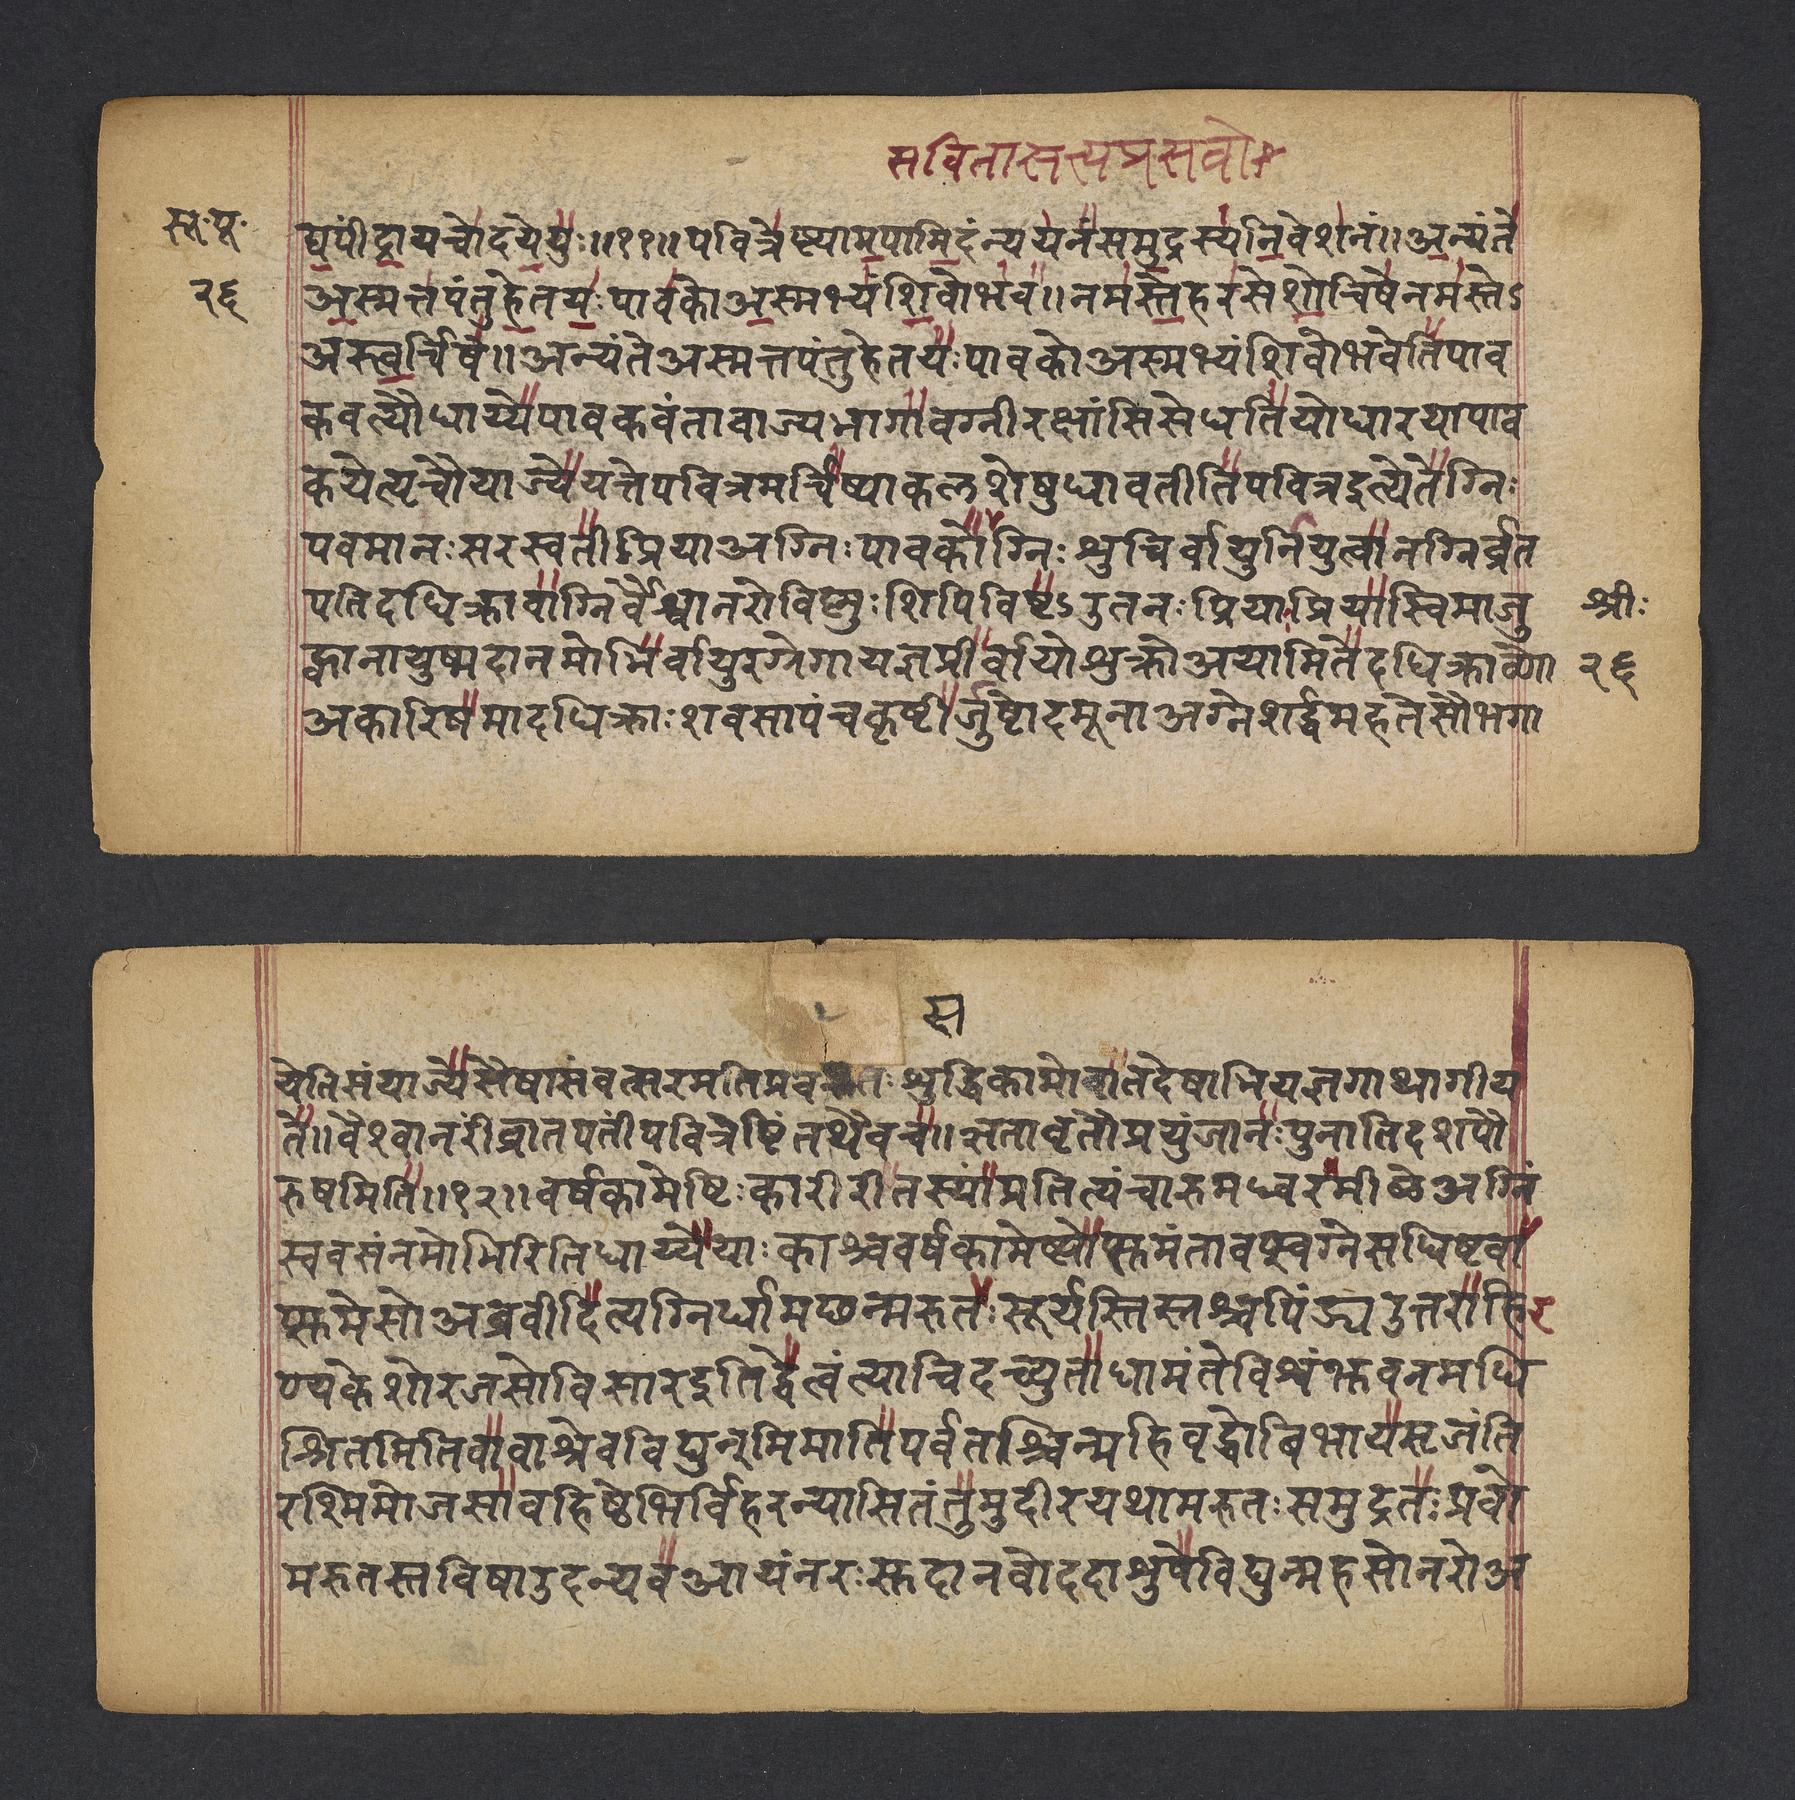 सवितासत्यप्रसवो
सू.पू.
२६
द्यपींद्रायचोदयेयुः॥११॥पवित्रेष्ट्यामपामिदंन्ययनंसमुद्रस्यनिवेशनं॥अन्यंते
अस्मत्तपंतुहेतयःपावकोअस्मभ्यंशिवोभव॥नमस्तेहरसेशोचिषेनमस्तेऽ
अस्त्वर्चिषे॥अन्यंतेअस्मत्तपंतुहेतयःपावकोअस्मभ्यंशिवोभवेतिपाव
कवत्यौधाय्येपावकवंतावाज्यभागावग्नीरक्षांसिसेधतियोधारयापाव
कयेत्यृचौयाज्येयत्तेपवित्रमर्चिष्याकलशेषुधावतीतिपवित्रइत्येतेग्निः
पवमानःसरस्वतीप्रियाअग्निःपावकोग्निःशुचिर्वायुर्नियुत्वानग्निर्व्रत
पतिदधिक्रावाग्निर्वैश्वानरोविष्णुःशिपिविष्टऽउतनःप्रियाप्रियास्विमाजु
श्रीः
२६
ह्वानायुष्मदानमोभिर्वायुरग्रेगायज्ञप्रीर्वायोशुक्रोअयामितेदधिक्राव्णो
अकारिषमादधिक्राःशवसापंचकृष्टीर्जुष्टोदमूनाअग्नेशर्द्धमहतेसौभगा
स
येतिसंयाज्येसैषासंवत्सरमतिप्रवसतःशुद्धिकामोवातदेषाभियज्ञगाथागीय
ते॥वैश्वानरींव्रातपतींपवित्रेष्टिंतथैवच॥ऋतावृतौप्रयुंजानःपुनातिदशपौ
रुषमिति॥१२॥वर्षकामेष्टिःकारीरीतस्यांप्रतित्यंचारुमध्वरमीळेअग्निं
स्ववसंनमोभिरितिधाय्येयाःकाश्चवर्षकामेष्ट्योप्सुमंतावप्स्वग्नेसधिष्टवा
प्सुमेसोअब्रवीदित्यग्निर्धामछन्मरुतःसूर्यस्तिस्रश्चपिंड्यउत्तराहिर
ण्यकेशोरजसोविसारइतिद्वेत्वंत्याचिदच्युताधामंतेविश्वंभुवनमधि
श्रितमितिवावाश्रेवविद्युन्मिमातिपर्वतश्चिन्महिवृद्धोबिभायसृजंति
रश्मिमोजसावहिष्ठेभिर्विहरन्यासितंतुमुदीरयथामरुतःसमुद्रतःप्रवो
मरुतस्तविषाउदन्यवआयंनरःसुदानवोददाशुषेविद्युन्महसोनरोअ